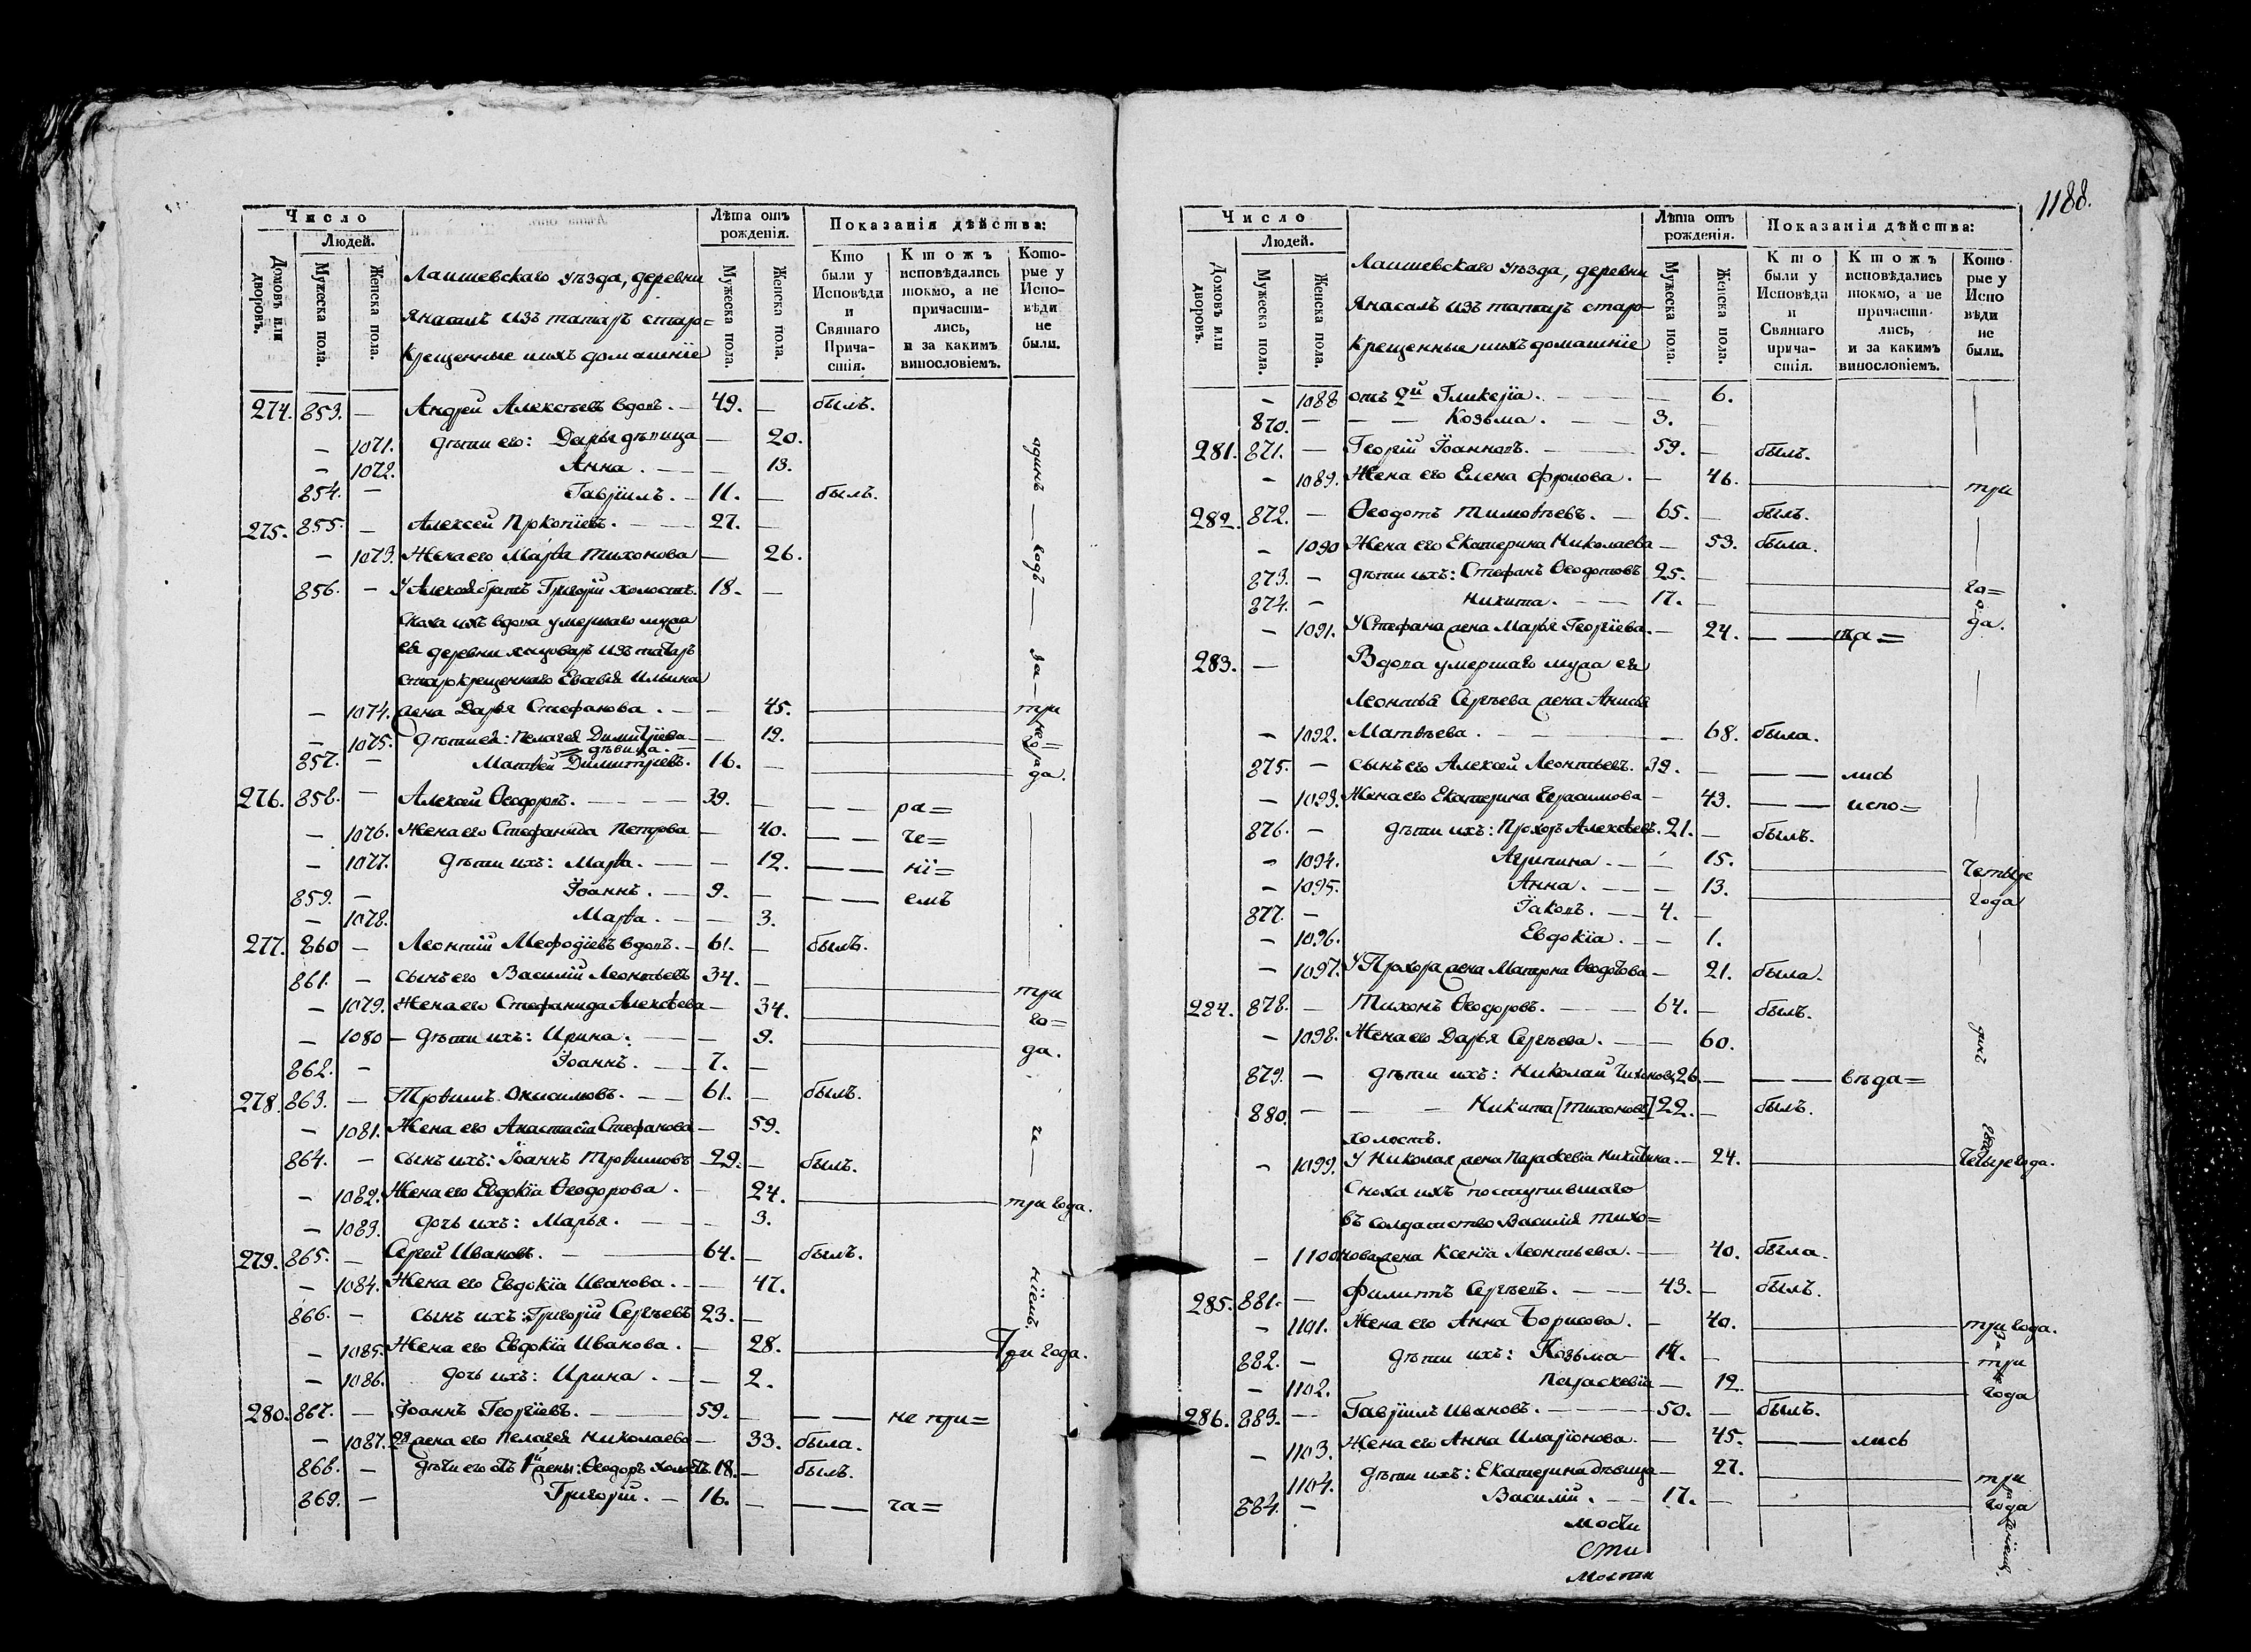 Число
Людей.
Домовъ или дворовъ.
Мужеска пола.
Женска пола.
Лаишевскаго уѣзда, деревни
Янасалъ изъ татаръ старо=
крещенные ихъ домашніе
Лѣта отъ рожденія.
Мужеска пола.
Женска пола.
Показанія дѣйства:
Кто были у Исповѣди и Святаго Причастія.
Ктожъ исповѣдались токмо, а не причастились, и за какимъ винословіемъ.
Которые у Исповѣди не были.
274. 853. — Андрей Алексѣевъ вдовъ. — 49. — былъ.
— 1071. дѣти его: Дарья дѣвица — 20.
— 1072. Анна. — — 13.
854. — Гавріилъ. — 11. — былъ.
275. 855. — Алексей Прокопіевъ. — 27. —
— 1073. Жена его Марѳа Тихонова — 26.
856. — У Алексея братъ Григорій холостъ. 18. —
Сноха ихъ вдова умершаго мужа
ея деревни изъ татаръ
старокрещеннаго Ильина
— 1074. жена Дарья Стефанова. — — 45. три
— 1075. дѣти ея: Пелагея Димитріева — 19. го=
дѣвица. —
857. — Матвей Димитріевъ. 16. — да.
276. 858. — Алексей Ѳеодоровъ. — 39. — — — ра=
— 1076. Жена его Стефанида Петрова — 40. — — че=
— 1077. дѣти ихъ: Марѳа. — — 12. — — ні=
859. — Іоаннъ. — 9. — — — емъ
— 1078. Марѳа. — — 3.
277. 860 — Леонтій Меѳодіевъ вдовъ. — 61. — былъ.
861. — сынъ его Василій Леонтьевъ 34. —
— 1079. Жена его Стефанида Алексѣева — 34. три
— 1080 — дѣти ихъ: Ирина. — — 9. го=
862. — Іоаннъ. — 7. — да.
278. 863. — Троѳимъ Онисимовъ. — 61. — былъ.
— 1081. Жена его Анастасіа Стефанова — 59.
864. — сынъ ихъ: Іоаннъ Троѳимовъ 29. — былъ.
— 1082. Жена его Евдокіа Ѳеодорова. — 24. три года.
— 1083. дочь ихъ: Марья. — — 3.
279. 865. — Сергей Ивановъ. — 64. — былъ.
— 1084. Жена его Евдокіа Иванова. — 47.
866. — сынъ ихъ: Григорій Сергѣевъ 23. —
— 1085. Жена его Евдокіа Иванова. — 28. Три года.
— 1086. дочь ихъ: Ирина. — — 2.
280. 867. — Іоаннъ Георгіевъ. — 59. — — — не при=
— 1087. 2я жена его Пелагея Николаева — 33. была.
868. — дѣти его отъ 1й жены: Ѳеодоръ холостъ 18. — былъ.
869. — Григорій. — 16. — — — ча=
одинъ — годъ — за — не
ра
че
ніемъ.
1188.
Число
Людей.
Домовъ или дворовъ.
Мужеска пола.
Женска пола.
Лаишевскаго уѣзда, деревни
Янасалъ изъ татаръ старо-
крещенные ихъ домашніе
Лѣта отъ рожденія.
Мужеска пола.
Женска пола.
Показанія дѣйства:
Кто были у Исповѣди и Святаго причастія.
Ктожъ исповѣдались токмо, а не причастились, и за какимъ винословіемъ.
Которые у Исповѣди не были.
— 1088 отъ 2й Гликеріа. — — 6.
870. — — — Козьма. — 3. —
281. 871. — Георгій Іоанновъ. — 59. — былъ.
— 1089. Жена его Елена Фролова. — 46. три
282. 872. — Ѳеодотъ Тимоѳѣевъ. — 65. — былъ.
— 1090 Жена его Екатерина Николаева — 53. была.
873. — дѣти ихъ: Стефанъ Ѳеодотовъ 25. — го=
874. — Никита. — 17. — да.
— 1091. У Стефана жена Марья Георгіева. — 24. — —
283. — Вдова умершаго мужа ея
Леонтья Сергѣева жена Анисья
— 1092. Матвѣева. — — 68. была.
875. — сынъ его Алексей Леонтьевъ. 39. — — — лись
— 1093. Жена его Екатерина Герасимова — 43. — — испо=
876. — дѣти ихъ: Прохоръ Алексѣевъ. 21. — былъ.
— 1094. Агрипина. — — 15. четыре
— 1095. Анна. — — 13. года
877. — Іаковъ. — 4. —
— 1096. Евдокіа. — — 1.
— 1097. У Прохора жена Матрона Ѳеодотова — 21. была.
284. 878. — Тихонъ Ѳеодоровъ. — 64. — былъ.
— 1098. Жена его Дарья Сергѣева. — — 60.
879. — дѣти ихъ: Николай Тихоновъ 26. — — — вѣда=
880. — — — Никита [Тихоновъ] 22. — былъ.
холостъ.
— 1099. У Николая жена Параскевіа Никитина. — 24. четыре года.
Сноха ихъ поступившаго
въ солдатство Василія Тихо=
— 1100 нова жена Ксеніа Леонтьева. — 40. была.
285. 881. — Филиппъ Сергѣевъ. — 43. — былъ.
— 1101. Жена его Анна Борисова. — 40. три года.
882. — дѣти ихъ: Козьма — 14. — три
— 1102. Параскевіа — 12. года
286. 883. — Гавріилъ Ивановъ. — 50. — былъ.
— 1103. Жена его Анна Иларіонова. — 45. — — лись
1104. дѣти ихъ: Екатерина дѣвица — 27. три
884. — Василій. — 17. — года